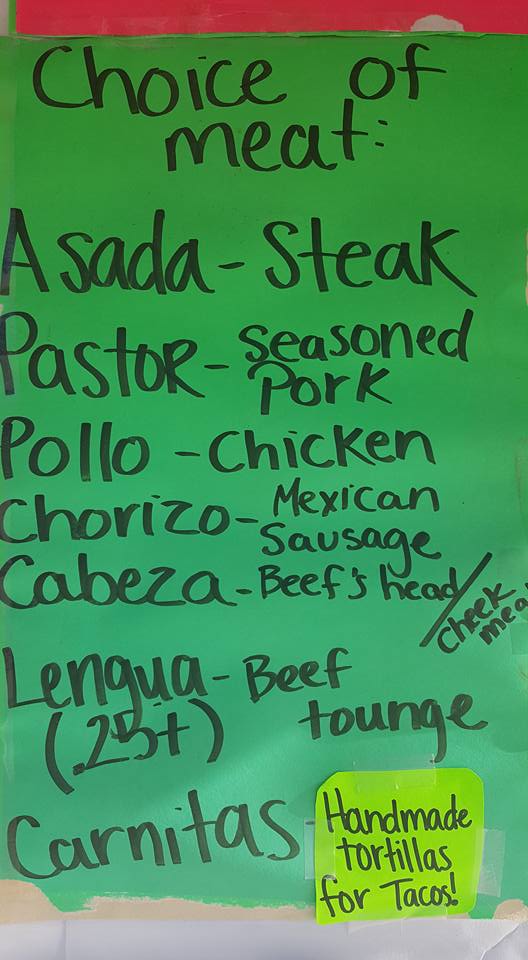 Choice of
meat:
Asada - Steak
Pastor - Seasoned
Pork
Pollo - Chicken
Chorizo - Mexican
Sausage
Cabeza - Beef's head/
cheek
meat
Lengua - Beef
(.25+) tounge
Carnitas -
Handmade
tortillas
for Tacos!